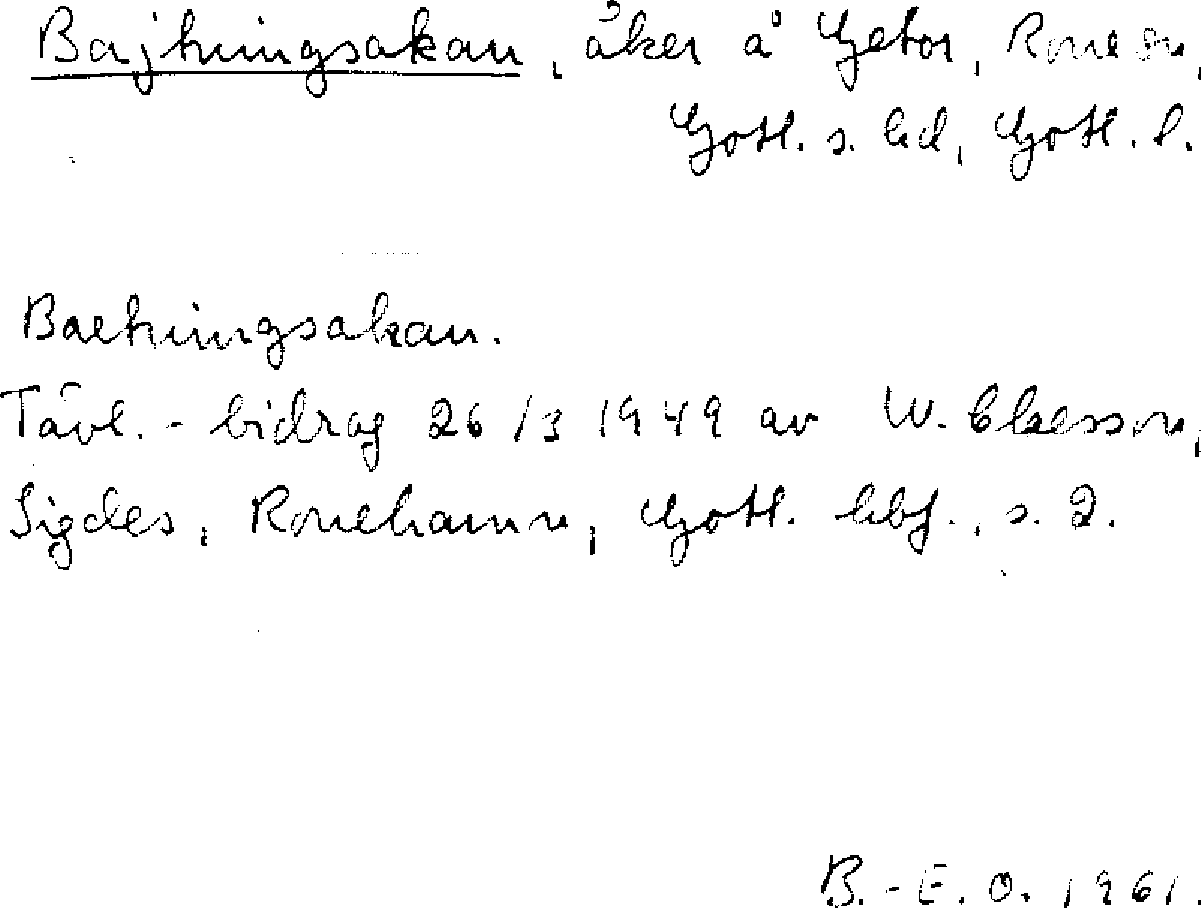 Bajhningsakan, åker å Getor, Rone sn,
Gotl. s. hd, Gotl. l.
Baehningsakan.
Tävl.-bidrag 26/3 1949 av W.
Sigdes, Ronehamn, Gotl. hbf., s. 2.
B.-E. O. 1961.